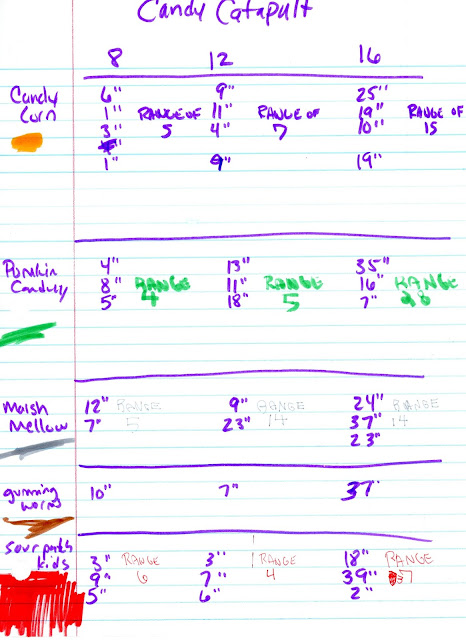 Candy Catapult
8 12 16
Candy Corn
6" 9" 25"
1" RANGE OF 11" RANGE OF 19" RANGE OF
3" 5 4" 7 10" 15
1" 9" 19"
Pumkin
4" 13" 35"
8" RANGE 11" RANGE 16" RANGE
5" 4 18" 5 7" 28
Marsh Mellow
12" RANGE 9" RANGE 24" RANGE
7" 5 23" 14 37" 14
23"
gumming worms
10" 7" 37"
sour patch kids
3" RANGE 3" RANGE 18" RANGE
9" 6 7" 4 39"
5" 6" 2"